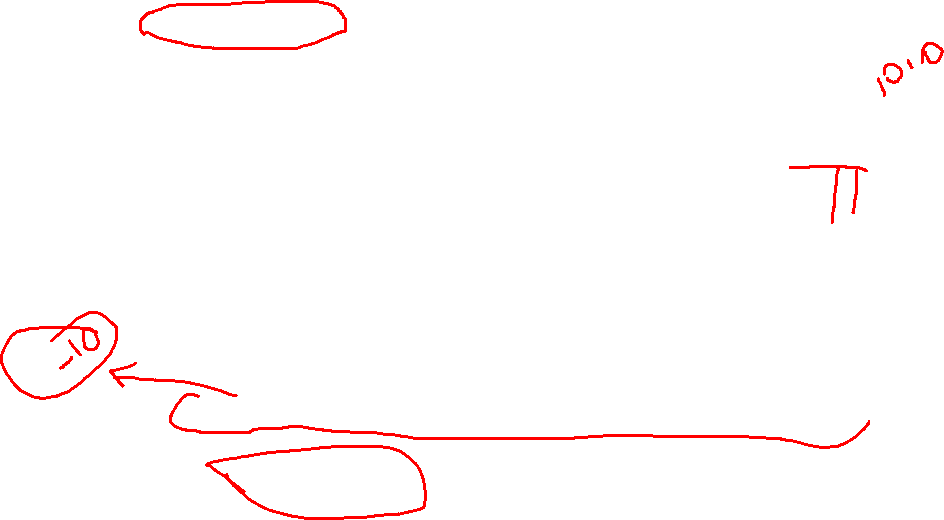 10.0
π
-10